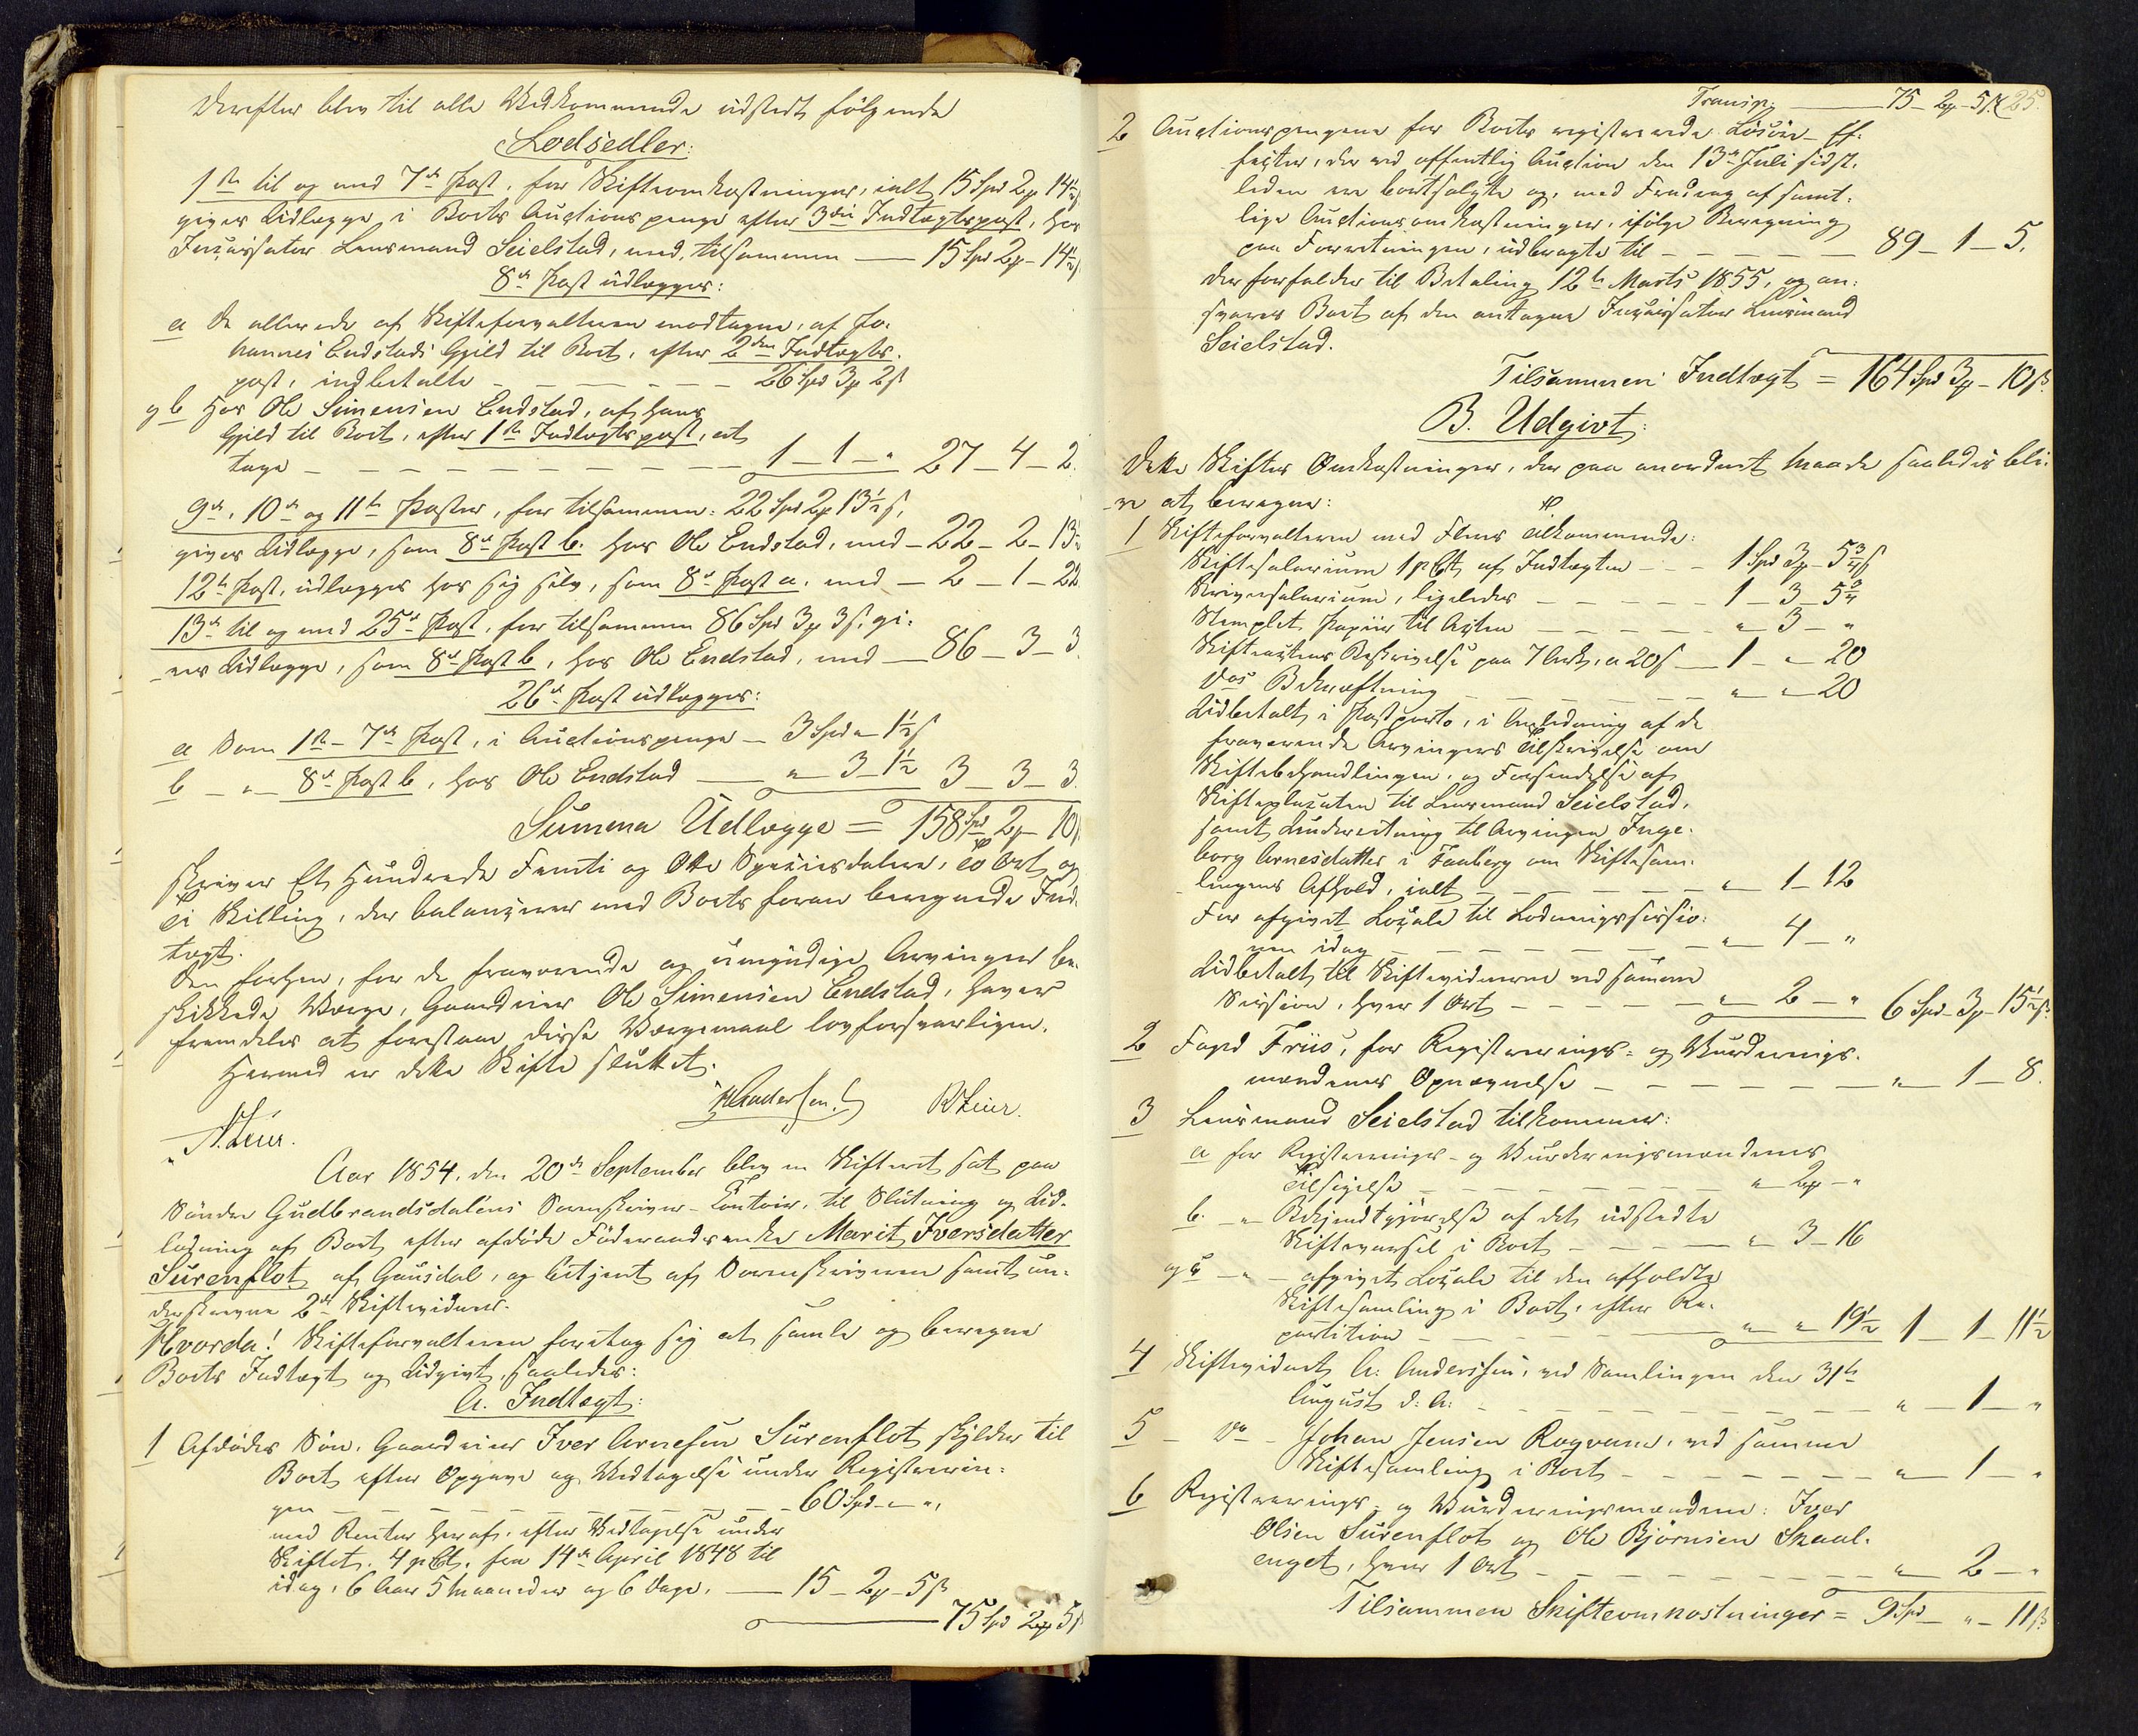 Derefter blev til alle Vedkommende udstedt følgende
Lodsedler:
1ste til og med 7de Post, for Skifteomkostninger, ialt 15 Spd 2 # 14½ ß
gives Udlægge i Boets Auctionspenge efter 3die Indtægtspost, hos
Incassator Lensmand Seielstad, med, tilsammen — 15 Spd 2 # - 14½ ß
8de Post udlægges:
a De allerede af Skifteforvalteren modtagne, af Jo-
hannes Endstads Gjeld til Boet, efter 2den Indtægts-
post, indbetalte - - - - - 26 Spd 3 # 2 ß
og b Hos Ole Simensen Endstad, af hans
Gjeld til Boet, efter 1ste Indtægtspost, at
tage - - - - - - - - - 1 - 1 - " 27 - 4 - 2.
9de, 10de og 11te Poster, for tilsammen: 22 Spd 2 # 13½ ß,
gives Udlægge, som 8de Post b. hos Ole Endstad, med - 22 - 2 - 13½
12te Post, udlægges hos sig selv, som 8de Post a. med - 2 - 1 - 22
13de til og med 25de Post, for tilsammen 86 Spd 3 # 3 ß, gi-
ves Udlægge, som 8de Post b, hos Ole Endstad, med - 86 - 3 - 3.
26de Post udlægges:
a Som 1ste - 7de Post, i Auctionspenge - 3 Spd " 1½ ß
b - " - 8de Post b, hos Ole Endstad - " - 3 - 1½ 3 - 3 - 3.
Summa Udlægge = 158 Spd 2 # - 10 ß.
skriver Et Hundrede Femti og Otte Speciesdaler, to Ort og
ti Skilling, der balancerer med Boets foran beregnede Ind-
tægt.
Den forhen, for de fraværende og umyndige Arvinger be-
skikkede Værge, Gaardeier Ole Simensen Endstad, haver
fremdeles at forestaae disse Værgemaal lovforsvarligen.
Hermed er dette Skifte sluttet.
Andersen. RZeier.
Aar 1854, den 20de September blev en Skifteret sat paa
Søndre Gudbrandsdalens Sorenskriver-Contoir, til Slutning og Ud-
lodning af Boet efter afdøde Føderaadsenke Marit Iversdatter
Surenflot af Gausdal, og betjent af Sorenskriveren samt un-
derskrevne 2de Skiftevidner.
Hvorda! Skifteforvalteren foretog sig at samle og beregne
Boets Indtægt og Udgivt, saaledes:
A. Indtægt:
1 Afdødes Søn, Gaardeier Iver Arnesen Surenflot skylder til
Boet, efter Opgave og Vedtagelse under Registrerin-
gen - - - - - - - - - 60 Spd - " - ",
med Renter heraf, efter Vedtagelse under
Skiftet, 4 pCt. fra 14de April 1848 til
idag, 6 Aar 5 Maaneder og 6 Dage, - 15 - 2 # - 5 ß
75 Spd 2 # 5 ß
Transp. - 75 - 2 # - 5 ß 25.
2 Auctionspengene for Boets registrerede Løsøre-Ef-
fecter, der ved offentlig Auction den 13de Juli sidst-
leden ere bortsolgte og, med Fradrag af samt-
lige Auctionsomkostninger, ifølge Beregning
paa Forretningen, udbragte til - - - - - 89 - 1 - 5.
der forfalder til Betaling 12te Marts 1855, og an-
svares Boet af den antagne Incassator Lensmand
Seielstad.
Tilsammen Indtægt = 164 Spd 3 # - 10 ß.
B. Udgivt:
Dette Skiftes Omkostninger, der paa anordnet Maade saaledes bli-
ve at beregne:
1 Skifteforvalteren med Flere tilkommende:
Skiftesalarium 1 pCt af Indtægten - - 1 Spd 3 # - 5¾ ß
Skriversalarium, ligeledes - - - - - 1 - 3 - 5¾
Stemplet Papiir til Acten - - - - - " - 3 - "
Skifteactens Beskrivelse paa 7 Ark, a 20 ß - 1 - " - 20
Dos Bekræftning - - - - - " " - 20
Udbetalt i Postporto, i Anledning af de
fraværende Arvingers Tilskrivelse om
Skiftebehandlingen, og Forsendelse af
Skifteplacaten til Lensmand Seielstad,
samt Underretning til Arvingen Inge-
borg Arnesdatter i Faaberg om Skiftesam-
lingens Afhold, ialt - - - - - - " - 1 - 12
For afgivet Locale til Lodningssessio-
nen idag - - - - - - - " - 4 - "
Udbetalt til Skiftevidnerne ved samme
Session, hver 1 Ort - - - - - " - 2 - " 6 Spd - 3 # - 15½ ß.
2 Foged Friis, for Registrerings- og Vurderings-
mændenes Opnævnelse - - - - - - " - 1 - 8.
3 Lensmand Seielstad tilkommer:
a for Registrerings- og Vurderingsmændenes
Tilsigelse - - - - - - - " 2 # - "
b. - " - Bekjendtgjørelse af det udstedte
Skiftevarsel i Boet - - - - " - 3 - 16
og c - " - afgivet Locale til den afholdte
Skiftesamling i Boet, efter Re-
partition - - - - - - " - " - 19½ 1 - 1 - 11½
4 Skiftevidnet A. Anderssen, ved Samlingen den 31te
August d: A: - - - - - - - - - " - 1 - "
5 - Do - Johan Jensen Rogvane, ved samme
Skiftesamling i Boet - - - - - - - " - 1 - "
6 Registrerings- og Vurderingsmændene: Iver
Olsen Surenflot og Ole Bjørnsen Skaal-
enget, hver 1 Ort - - - - - - - - " - 2 - "
Tilsammen Skifteomkostninger = 9 Spd - " - 11 ß.